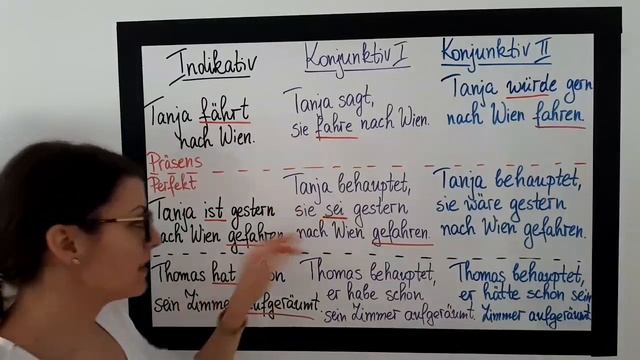 Indikativ
Tanja fährt
nach Wien.
Präsens
Perfekt
Tanja ist gestern
nach Wien gefahren
Thomas hat
sein Zimmer aufgeräumt.
Konjunktiv I
Tanja sagt,
sie fahre nach Wien.
Tanja behauptet,
sie sei gestern
nach Wien gefahren.
Thomas behauptet,
er habe schon
sein Zimmer aufgeräumt.
Konjunktiv II
Tanja würde gern
nach Wien fahren.
Tanja behauptet,
sie wäre gestern
nach Wien gefahren.
Thomas behauptet,
er hätte schon sein
Zimmer aufgeräumt